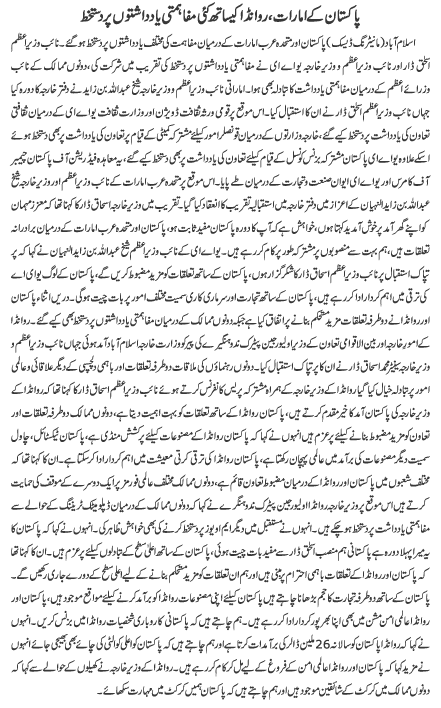 پاکستان کے امارات، روانڈا کیساتھ کئی مفاہمتی یادداشتوں پر دستخط
اسلام آباد (مانیٹرنگ ڈیسک) پاکستان اور متحدہ عرب امارات کے درمیان مفاہمت کی مختلف یادداشتوں پر دستخط ہو گئے۔ نائب وزیراعظم
اسحٰق ڈار اور نائب وزیراعظم و وزیر خارجہ یو اے ای نے مفاہمتی یادداشتوں پر دستخط کی تقریب میں شرکت کی، دونوں ممالک کے نائب
وزرائے اعظم کے درمیان مفاہمتی یادداشتوں کا تبادلہ ہوا۔ اماراتی نائب وزیراعظم و وزیر خارجہ شیخ عبداللہ بن زاید نے دفتر خارجہ کا دورہ کیا
جہاں نائب وزیراعظم اسحٰق ڈار نے ان کا استقبال کیا۔ اس موقع پر قومی ورثہ و ثقافت ڈویژن اور وزارت ثقافت یو اے ای کے درمیان تعاون
کی یادداشت پر دستخط کیے گئے، خارجہ وزارتوں کے درمیان قونصلر امور کیلئے مشترکہ کمیٹی کے قیام پر تعاون کی یادداشت پر بھی دستخط ہوئے
اسکے علاوہ یو اے ای پاکستان مشترکہ بزنس کونسل کے قیام کیلئے تعاون کی یادداشت پر بھی دستخط کیے گئے، یہ معاہدہ فیڈریشن آف پاکستان چیمبر
آف کامرس اور یو اے ای ایوان صنعت و تجارت کے درمیان طے پایا۔ اس موقع پر متحدہ عرب امارات کے نائب وزیراعظم و وزیر خارجہ شیخ
عبداللہ بن زاید النہیان کے اعزاز میں دفتر خارجہ میں استقبالیہ تقریب کا انعقاد کیا گیا۔ تقریب میں وزیر خارجہ اسحاق ڈار کا کہنا تھا کہ معزز مہمان
کو اپنے گھر آمد پر خوش آمدید کہتا ہوں، خواہش ہے کہ آپ کا دورہ پاکستان مفید ثابت ہو، پاکستان اور متحدہ عرب امارات کے درمیان برادرانہ
تعلقات ہیں، ہم بہت سے منصوبوں پر مشترکہ طور پر کام کر رہے ہیں۔ یو اے ای کے نائب وزیراعظم شیخ عبداللہ بن زاید النہیان نے کہا کہ پر
تپاک استقبال پر نائب وزیراعظم اسحاق ڈار کا شکر گزار ہوں، پاکستان کے ساتھ تعلقات کو مزید مضبوط کریں گے، پاکستان کے لوگ یو اے ای
کی ترقی میں اہم کردار ادا کر رہے ہیں، پاکستان کے ساتھ تجارت اور سرمایہ کاری سمیت مختلف امور پر بات چیت ہوگی۔ دریں اثناء پاکستان
اور روانڈا نے دوطرفہ تعلقات مزید مستحکم بنانے پر اتفاق کیا ہے جبکہ دونوں ممالک کے درمیان مفاہمتی یادداشتوں پر دستخط بھی کیے گئے۔
روانڈا کے وزیر خارجہ اور بین الاقوامی تعاون کے وزیر اولیور جین پیٹرک ندوہنگیرے کی پیر کو وزارت خارجہ اسلام آباد آمد ہوئی جہاں نائب وزیراعظم و وزیر
خارجہ سینیٹر محمد اسحاق ڈار نے ان کا پرتپاک استقبال کیا۔ دونوں رہنماؤں کی ملاقات دوطرفہ تعلقات اور باہمی دلچسپی کے دیگر علاقائی و عالمی
امور پر تبادلہ خیال کیا گیا۔ روانڈا کے وزیر خارجہ کے ہمراہ مشترکہ پریس کانفرنس کرتے ہوئے نائب وزیراعظم اسحاق ڈار کا کہنا تھا کہ روانڈا کے
وزیر خارجہ کی پاکستان آمد کا خیر مقدم کرتے ہیں، پاکستان روانڈا کے ساتھ تعلقات کو بہت اہمیت دیتا ہے، دونوں ممالک دوطرفہ تعلقات اور
تعاون کو مزید مضبوط بنانے پر پرعزم ہیں انہوں نے کہا کہ پاکستان روانڈا کے مصنوعات کیلئے پرکشش منڈی ہے، پاکستان ٹیکسٹائل، چاول
سمیت دیگر مصنوعات کی برآمد میں عالمی پہچان رکھتا ہے، پاکستان روانڈا کی ترقی کرتی معیشت میں اہم کردار ادا کر سکتا ہے۔ ان کا کہنا تھا کہ
مختلف شعبوں میں پاکستان اور روانڈا کے درمیان تعاون کے وسیع مواقع ہیں، دونوں ممالک مختلف عالمی فورمز پر ایک دوسرے کے موقف کی حمایت
کرتے ہیں اس موقع پر وزیر خارجہ روانڈا اولیور جین پیٹرک ندوہنگیرے نے کہا کہ دونوں ممالک کے درمیان ڈپلومیٹک ٹریننگ کے حوالے سے
مفاہمتی یادداشت پر دستخط ہو چکے ہیں۔ انہوں نے مستقبل میں دیگر اہم ایم او یوز پر دستخط کرنے کی بھی خواہش ظاہر کی۔ انہوں نے کہا کہ پاکستان کا
یہ میرا پہلا دورہ ہے، پاکستانی ہم منصب اسحٰق ڈار سے مفید بات چیت ہوئی، پاکستان کے ساتھ اعلیٰ سطح کے تبادلوں کیلئے پرعزم ہیں۔ ان کا کہنا تھا
کہ پاکستان اور روانڈا کے تعلقات باہمی احترام پر مبنی ہیں اور ہم تعلقات کو مزید مستحکم بنانے کے لیے اعلیٰ سطح کے دورے جاری رکھیں گے۔
پاکستان کے ساتھ دوطرفہ تجارت کا حجم بڑھانا چاہتے ہیں پاکستان کیلئے اپنی مصنوعات روانڈا کو برآمد کرنے کیلئے مواقع موجود ہیں، پاکستان اور روانڈا
عالمی امن مشن میں بھی اپنا بھرپور کردار ادا کر رہے ہیں، ہم چاہتے ہیں کہ پاکستان کی کاروباری شخصیات روانڈا میں بزنس کریں۔ انہوں نے
کہا کہ روانڈا پاکستان کو سالانہ 26 ملین ڈالر کی برآمدات کرتا ہے اور ہم چاہتے ہیں کہ پاکستان کو اعلیٰ کوالٹی کی چائے بھی بھیجی جائے انہوں
نے مزید کہا کہ پاکستان اور روانڈا عالمی امن کے فروغ کے لیے مل کر کام کر رہے ہیں۔ روانڈا کے وزیر خارجہ نے کھیلوں کے حوالے سے کہا کہ
دونوں ممالک میں کرکٹ کے شائقین موجود ہیں اور ہم چاہتے ہیں کہ پاکستان ہمیں کرکٹ میں مہارت سکھائے۔